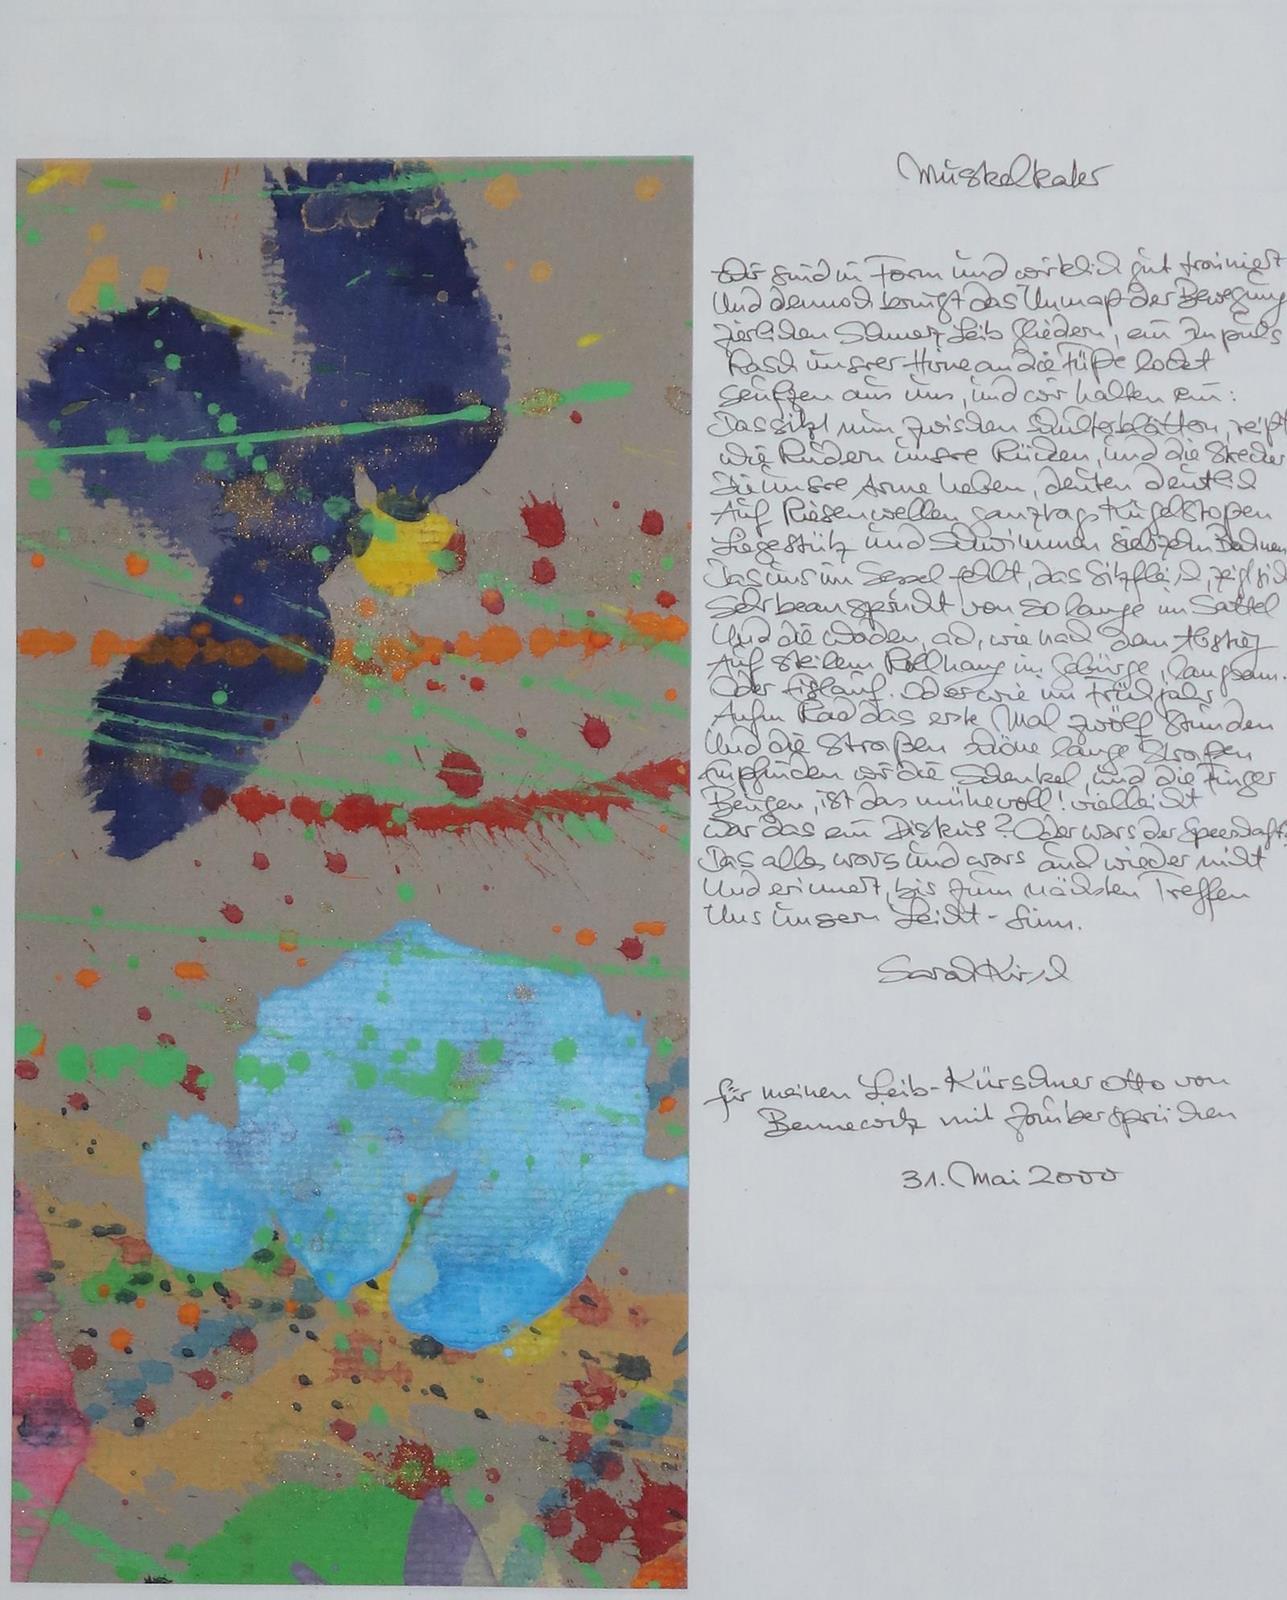 Muskelkater
Wir sind in Form und wirklich gut trainiert
Und dennoch bringt das Unmaß der Bewegung
zierlichen Schmerz Leib Gliedern, ein Impuls
Rasch unsrer Hirne an die Füße lockt
seufzen aus uns, und wir halten ein:
Das sitzt nun zwischen Schulterblättern, reißt
wie Rudern unsre Rücken, und die
Die unsre Arme heben, deuten deutlich
Auf Riesenwellen ganztags Kugelstoßen
Liegestütz und Schwimmen siebzehn Bahnen
Das uns im Sessel fehlt, das Sitzfleisch, zeigt sich
Sehr beansprucht von so lange im Sattel
Und die Waden, ach, wie nach dem Abstieg
Auf steilem Rollhang im Gebürge, langsam.
Oder Eislauf. Oder wie im Frühjahr
Aufm Rad das erste Mal zwölf Stunden
Und die Straßen schöne lange Straßen
Empfinden wir die Schenkel, und die Finger
Beugen, ist das mühevoll! vielleicht
War das ein Diskus? Oder wars der Speerschaft?
Das alles wars und wars auch wieder nicht
Und erinnert, bis zum nächsten Treffen
Uns unsern Leicht-sinn.
Sarah Kirsch
für meinen Leib-Kürschner Otto von
Bennewitz mit Zaubersprüchen
31. Mai 2000